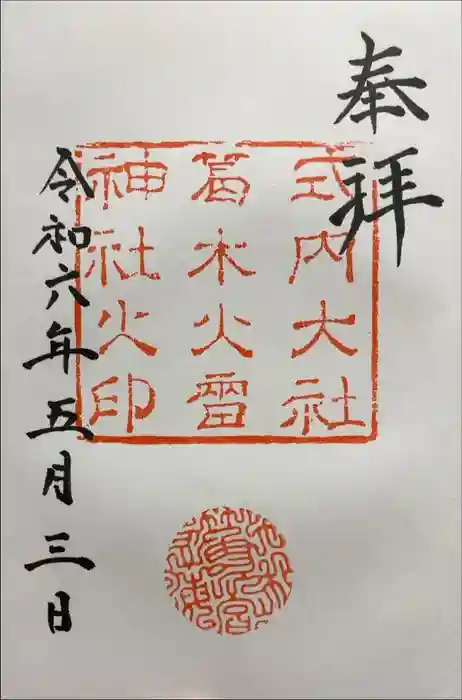 奉拝
式内大社
葛木火雷
神社之印
令和六年五月三日